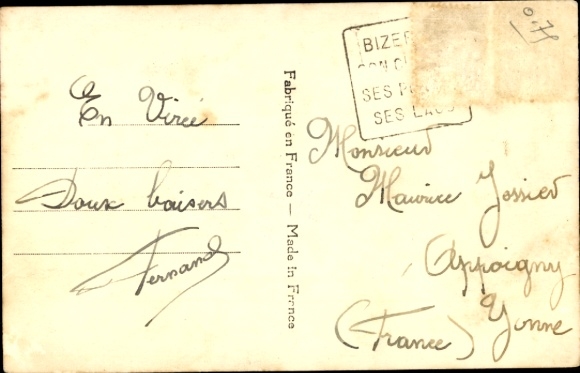 En Virée
Doux baisers
Fernand
Fabriqué en France — Made in France
BIZER
SON
SES
SES LACS
0,75
Monsieur
Maurice Jossier
Appoigny
Yonne
(France)